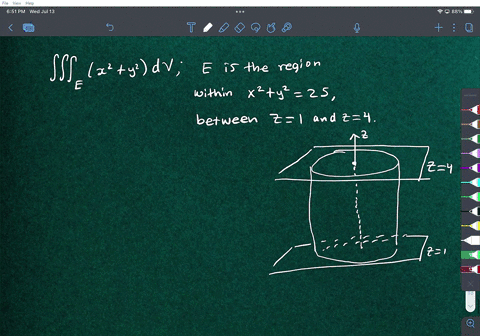 File View Help
6:51 PM Wed Jul 13
88%
T
∭_E (x² + y²) dV; E is the region
within x² + y² = 25,
between z = 1 and z = 4.
z
z=4
z=1